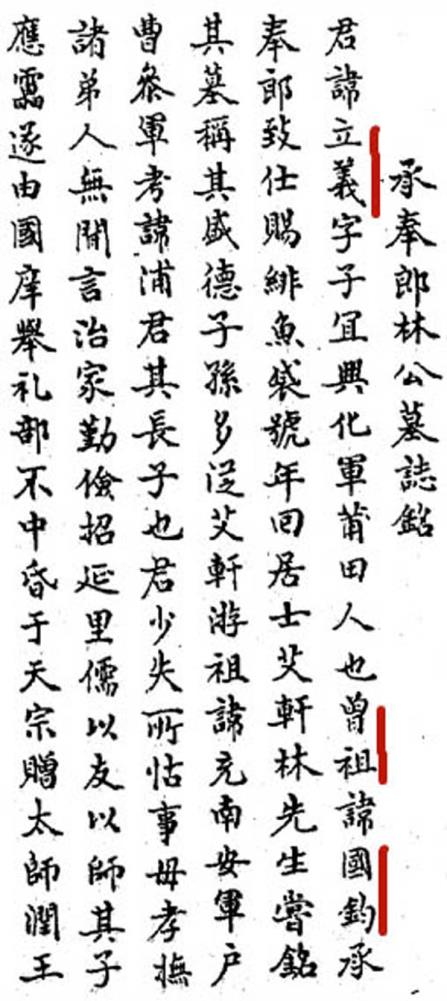 承奉郎林公墓誌銘
君諱立義字子宜興化軍莆田人也曾祖諱國鈞承
奉郎致仕賜緋魚袋號年回居士艾軒林先生嘗銘
其墓稱其盛德子孫多從艾軒游祖諱充南安軍户
曹叅軍考諱浦君其長子也君少失所怙事毋孝撫
諸弟人無閒言治家勤儉招延里儒以友以師其子
應䨇遂由國庠舉礼部不中昏于天宗贈太師潤王